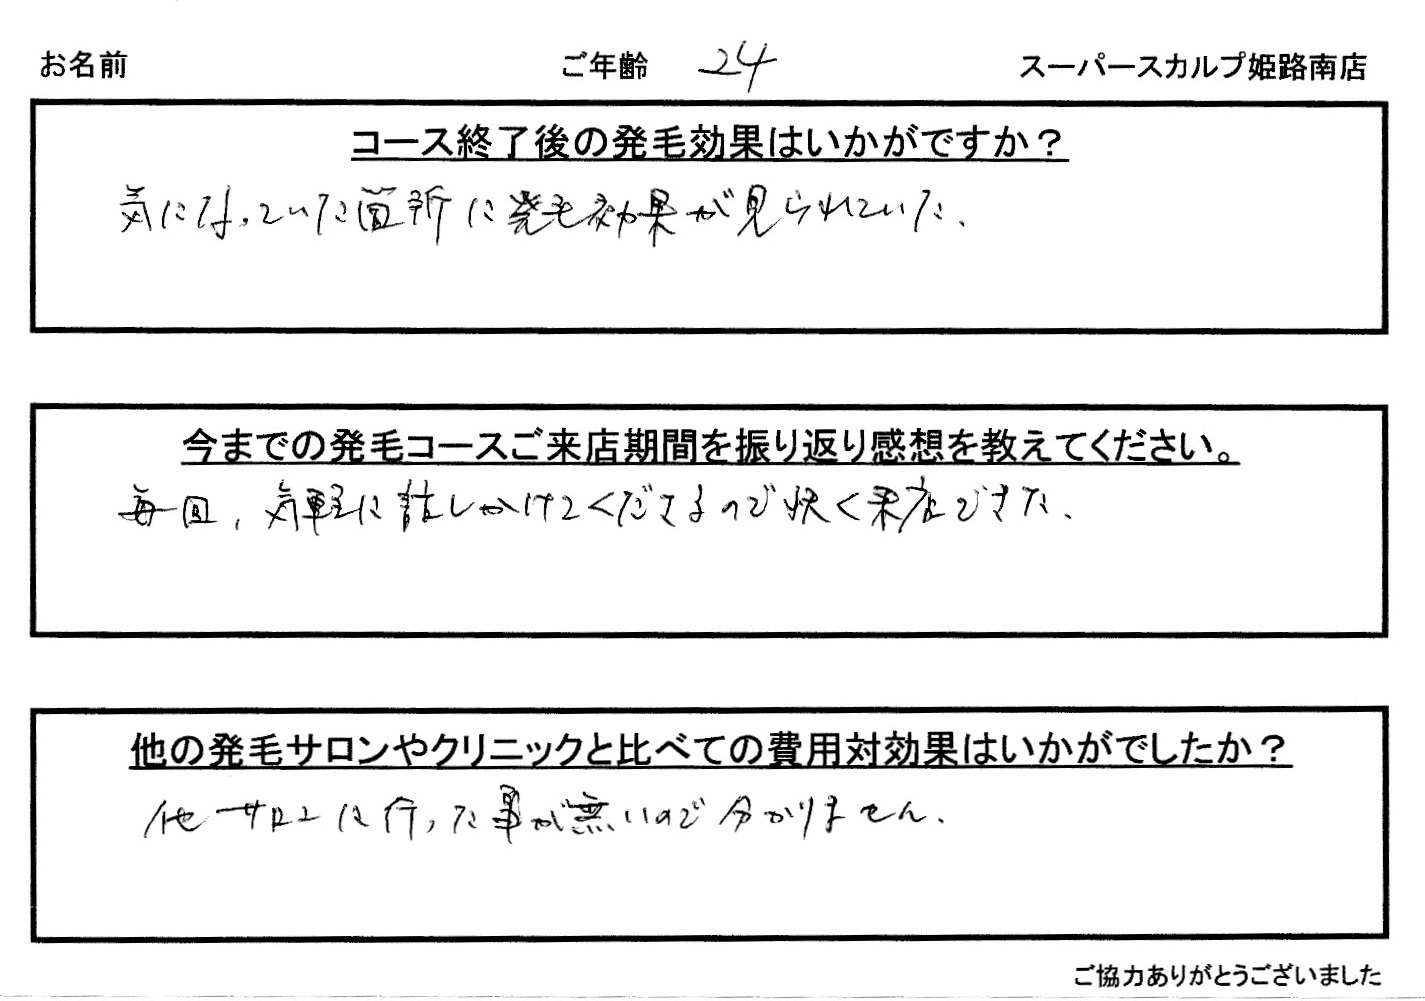 お名前 ご年齢 24 スーパースカルプ姫路南店
コース終了後の発毛効果はいかがですか？
気になっていた箇所に発毛効果が見られていた。
今までの発毛コースご来店期間を振り返り感想を教えてください。
毎回、気軽に話しかけてくださるので快く来店できた、
他の発毛サロンやクリニックと比べての費用対効果はいかがでしたか？
他サロンに行った事が無いので分かりません。
ご協力ありがとうございました